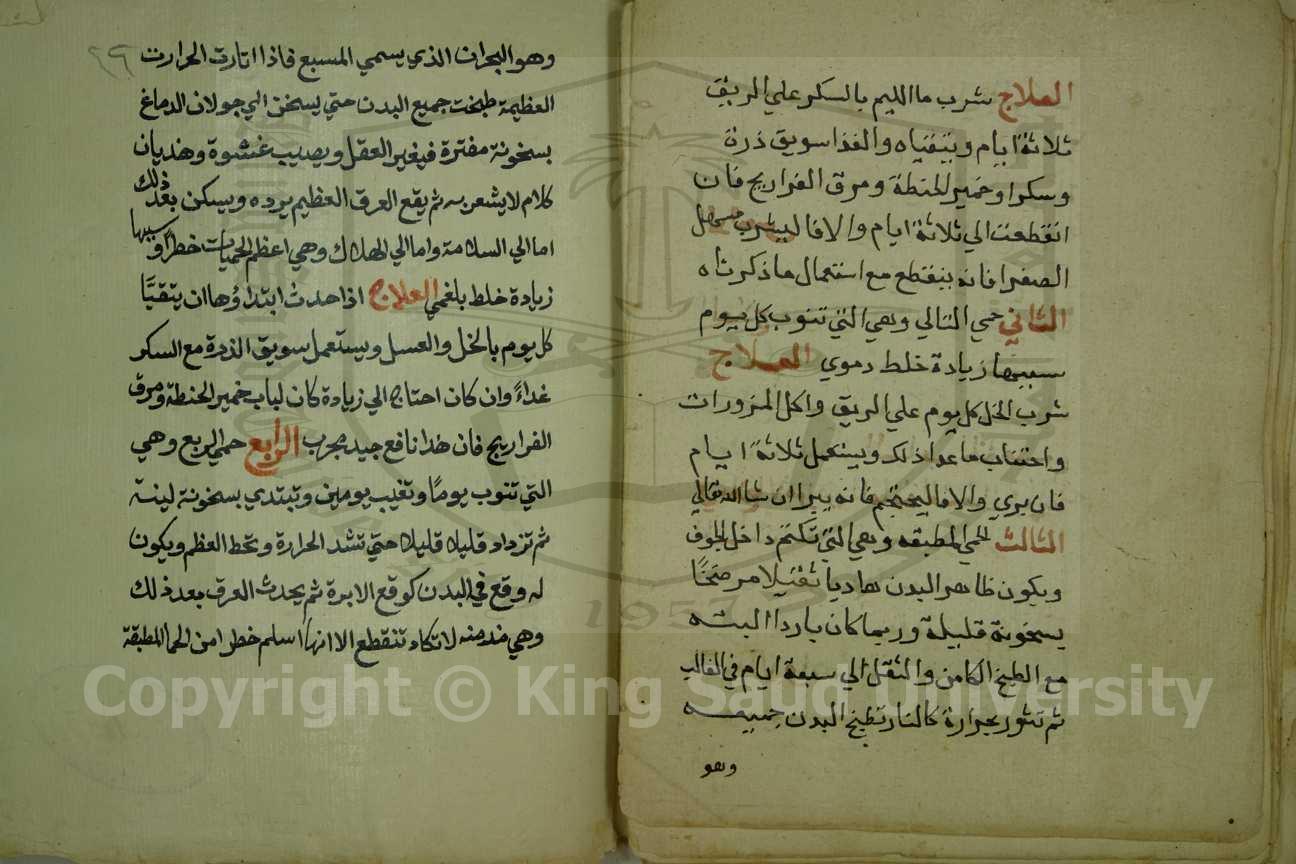 العلاج شرب ما الليم بالسكر علي الريق
ثلاثة ايام ويتقياه والغذا سويق ذرة
وسكر او خمير الحنطة ومرق الفراريج فان
انقطعت الي ثلاثة ايام والا فاليشرب مسهل
الصفرا فانه ينقطع مع استعمال ما ذكرناه
الثاني حمي التالي وهي التي تنوب كل يوم
سببها زيادة خلط دموي العلاج
شرب الخل كل يوم علي الريق واكل المزورات
واجتناب ما عدا ذلك ويستعمل ثلاثة ايام
فان بري والا فاليحتجم فانه يبرا ان شا الله تعالي
الثالث الحمي المطبقه وهي التي تكتم داخل الجوف
ويكون ظاهر البدن هاديا ثقيلا مرضخا
بسخونة قليلة وربما كان باردا البشه
مع الطبخ الكامن والثقل الي سبعة ايام في الغالب
ثم تثور بحرارة كالنار تطبخ البدن جميعه
وهو
٢٩
وهو البحران الذي يسمي المسبع فاذا اثارت الحرارت
العظيمة طبخت جميع البدن حتي يسخن الي جولان الدماغ
بسخونة مفترة فيغير العقل ويصيب غشوة وهذيان
كلام لا يشعر به ثم يقع العرق العظيم يرده ويسكن بعد ذلك
اما الي السلامة واما الي الهلاك وهي اعظم الحميات خطرا وسببها
زيادة خلط بلغمي العلاج اذا حدث ابتداؤها ان يتقيَّا
كل يوم بالخل والعسل ويستعمل سويق الذرة مع السكر
غداءً وان كان احتاج الي زيادة كان لباب خمير الحنطة ومرق
الفراريج فان هذا نافع جيد مجرب الرابع حمي الربع وهي
التي تنوب يومًا وتغيب يومين وتبتدي بسخونة لينة
ثم تزداد قليلا قليلا حتي تشد الحرارة وتحط العظم ويكون
له وقع في البدن كوقع الابرة ثم يحدث العرق بعد ذلك
وهي مزمنه لا تكاد تنقطع الا انها اسلم خطرا من الحما المطبقة
Copyright © King Saud University
1957